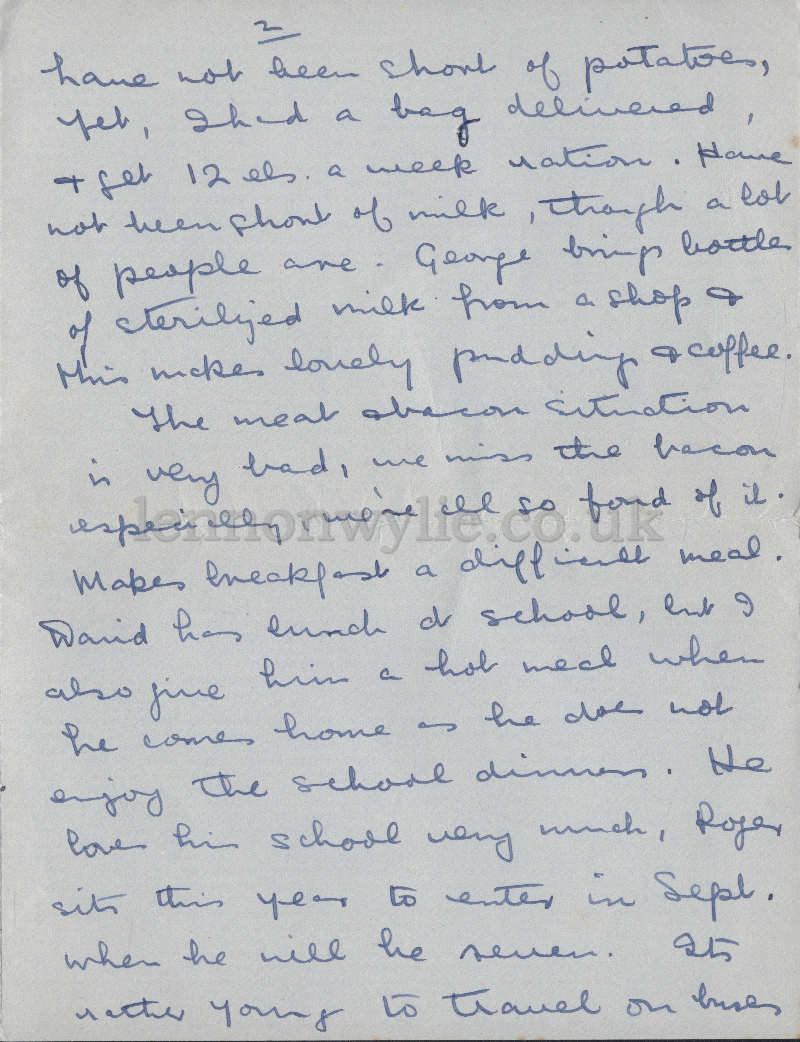 2
have not been short of potatoes,
yet, I had a bag delivered,
& get 12 lbs. a week ration. Have
not been short of milk, though a lot
of people are. George brings bottles
of sterilized milk from a shop &
this makes lovely pudding & coffee.
The meat & bacon situation
is very bad, we miss the bacon
especially, we're all so fond of it.
Makes breakfast a difficult meal.
David has lunch at school, but I
also give him a hot meal when
he comes home as he does not
enjoy the school dinners. He
loves his school very much, Roger
sits this year to enter in Sept.
when he will be seven. Its
rather young to travel on buses
lennonwylie.co.uk